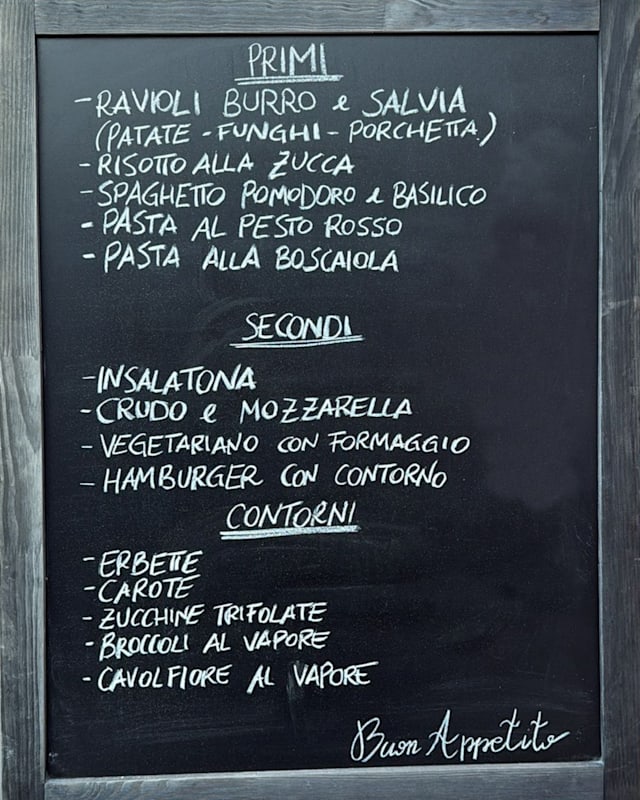 PRIMI
- RAVIOLI BURRO e SALVIA
(PATATE - FUNGHI - PORCHETTA)
- RISOTTO ALLA ZUCCA
- SPAGHETTO POMODORO e BASILICO
- PASTA AL PESTO ROSSO
- PASTA ALLA BOSCAIOLA
SECONDI
- INSALATONA
- CRUDO e MOZZARELLA
- VEGETARIANO CON FORMAGGIO
- HAMBURGER CON CONTORNO
CONTORNI
- ERBETTE
- CAROTE
- ZUCCHINE TRIFOLATE
- BROCCOLI AL VAPORE
- CAVOLFIORE AL VAPORE
Buon Appetito